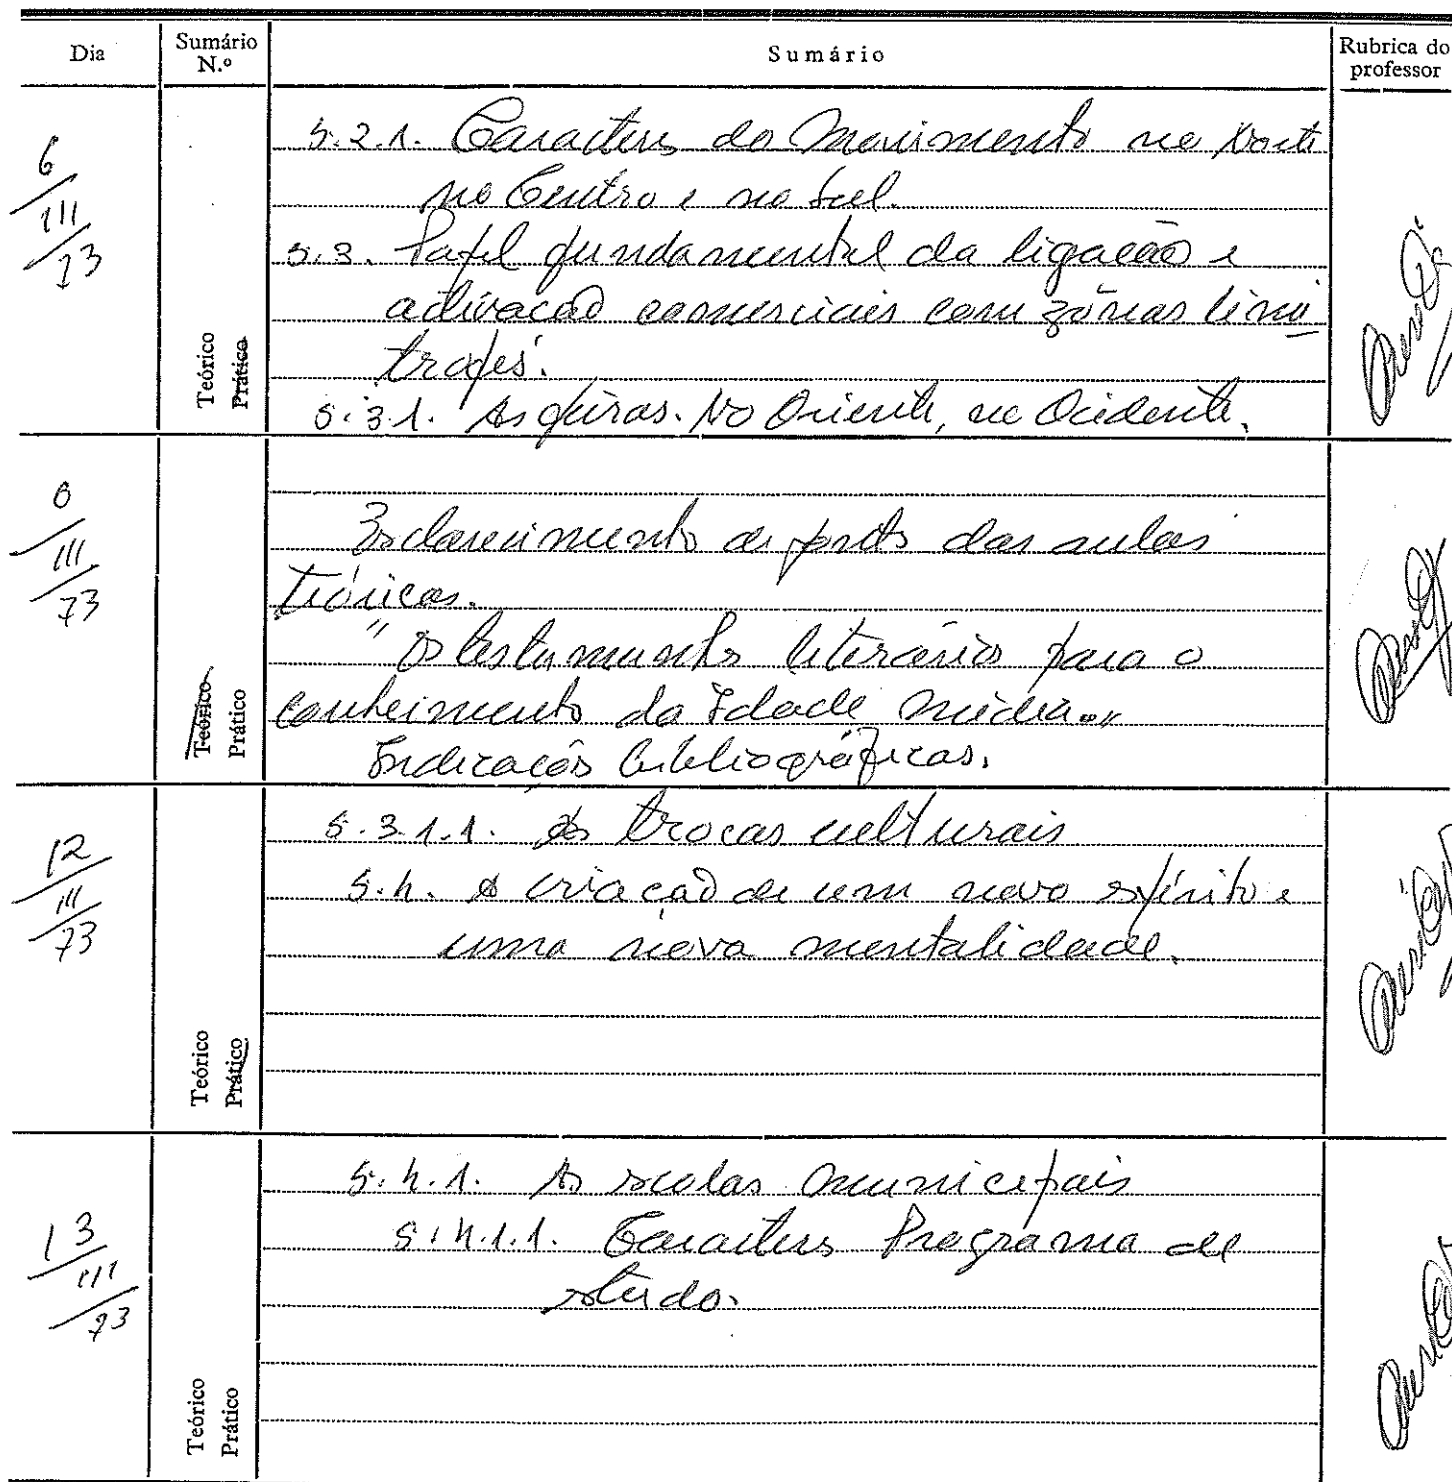 Dia
Sumário N.º
Sumário
Rubrica do professor
6/III/73
Teórico
Prático
5.2.1. Caracteres do Movimento no Norte
no Centro e no Sul.
5.3. Papel fundamental da ligação e
activação comerciais com zonas limí
trofes.
5.3.1. As feiras. No Oriente, no Ocidente.
/III/73
Teórico
Prático
Esclarecimento de pontos das aulas
teóricas.
"Os testemunhos literários para o
conhecimento da Idade Média."
Indicações bibliográficas.
12/III/73
Teórico
Prático
5.3.1.1. As trocas culturais
5.4. A criação de um novo espírito e
uma nova mentalidade.
13/III/73
Teórico
Prático
5.4.1. As escolas municipais
5.4.1.1. Caracteres Programa de
estudo.